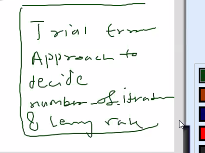 Trial error
Approach to
decide
number of iteration
& larn rate